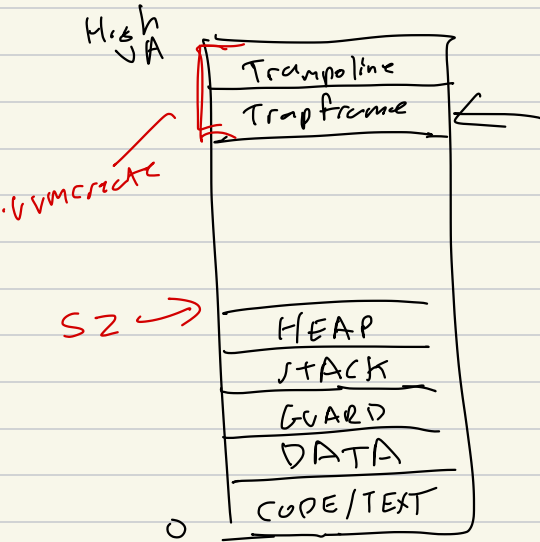 High
VA
Trampoline
Trapframe
uvmcreate
SZ
HEAP
STACK
GUARD
DATA
CODE/TEXT
0